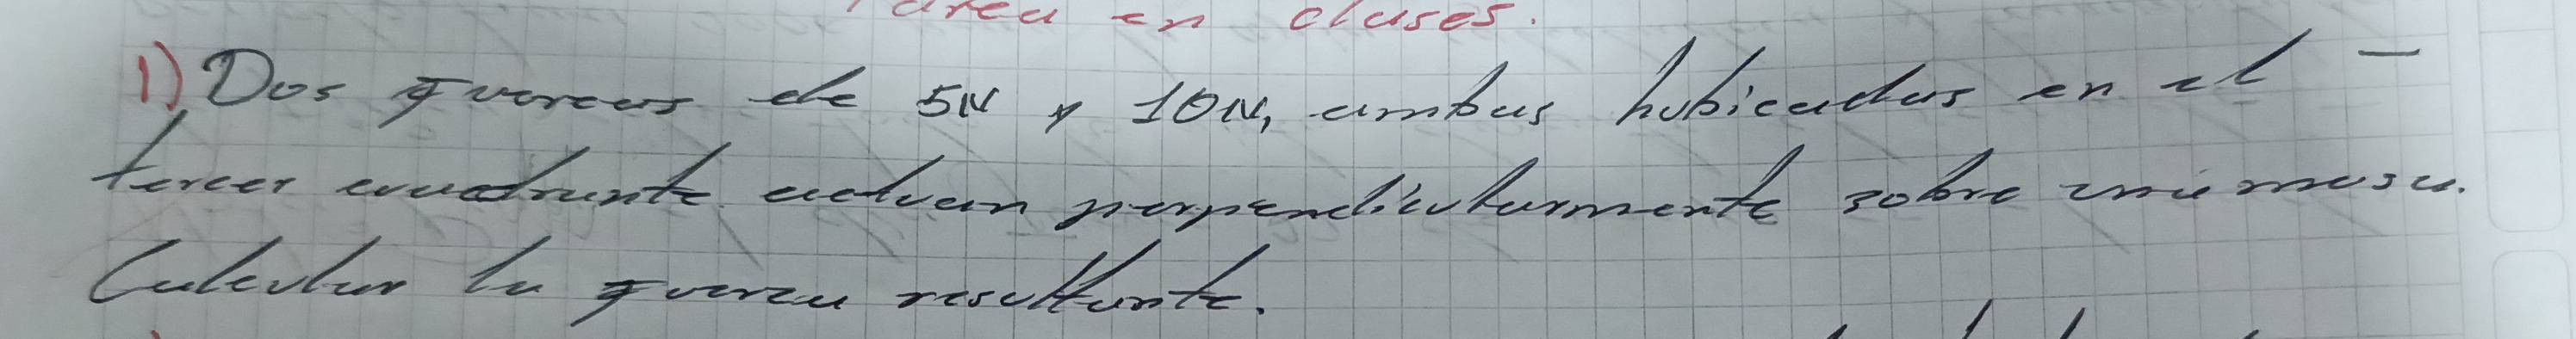 Tarea en clases.
1) Dos fuerzas de 5N y 10N, ambas hubicadas en el
tercer cuadrante actuan perpendicularmente sobre una masa.
Calcular la fuerza resultante.